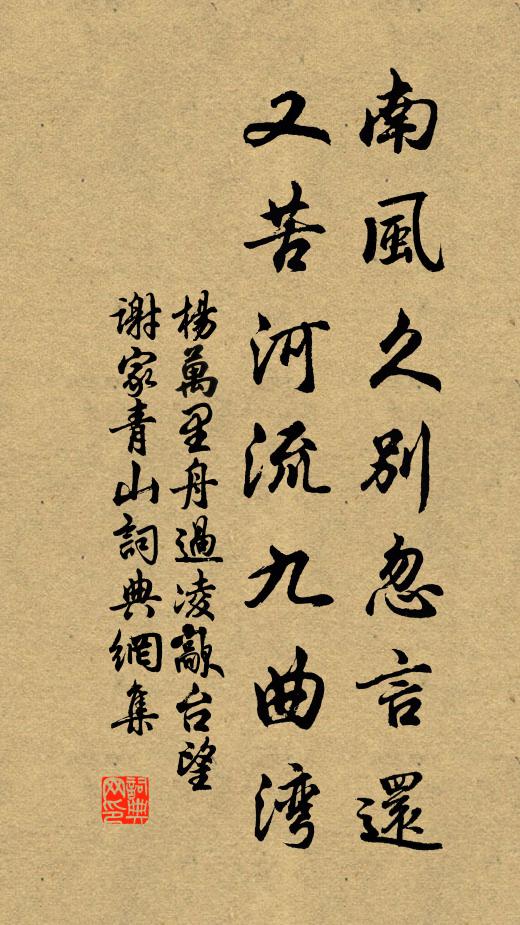 南風久別忽言還
又苦河流九曲湾
楊萬里舟過凌歊台望
謝家青山詞典網集
詞典网印